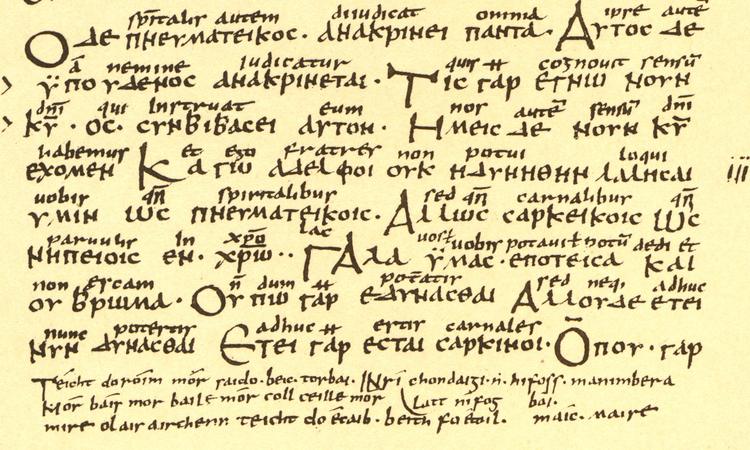 sp̄italis autem diiudicat omnia ipse autē
Ο ΔΕ ΠΝΕΥΜΑΤΕΙΚΟC · ΑΝΑΚΡΙΝΕΙ ΠΑΝΤΑ · ΑΥΤΟC ΔΕ
a nemine iudicatur quis cognouit sensū
ΫΠΟ ΥΔΕΝΟC ΑΝΑΚΡΙΝΕΤΑΙ · ΤΙC ΓΑΡ ΕΓΝΩ ΝΟΥΝ
dn̄i qui instruat eum nos autē sensū dn̄i
ΚῩ · ΟC · CΥΝΒΙΒΑCΕΙ ΑΥΤΟΝ · ΗΜΕΙC ΔΕ ΝΟΥΝ ΚῩ
habemus et ego fratres non potui loqui
ΕΧΟΜΕΝ ΚΑΓΩ ΑΔΕΛΦΟΙ ΟΥΚ ΗΔΥΝΗΘΗΝ ΛΑΛΗCΑΙ iii
uobis qn̄ spiritalibus sed qn̄ carnalibus qn̄
ΥΜΙΝ ΩC ΠΝΕΥΜΑΤΕΙΚΟΙC · ΑΛΛΩC CΑΡΚΕΙΚΟΙC ΩC
paruulis in xp̄o lac uos uobis potaui dedi et
ΝΗΠΕΙΟΙC ΕΝ · ΧΡΩ̄ ·· ΓΑΛΑ ΫΜΑC · ΕΠΟΤΕΙCΑ ΚΑΙ
non escam n̄ dum poteratis sed neq; adhuc
ΟΥ ΒΡΩΜΑ · ΟΥΠΩ ΓΑΡ ΕΔΥΝΑCΘΑΙ ΑΛΛΟΥΔΕ ΕΤΕΙ
nunc potestis adhuc estis carnales
ΝΥΝ ΔΥΝΑCΘΑΙ ΕΤΕΙ ΓΑΡ ΕCΤΑΙ CΑΡΚΙΝΟΙ · ΟΠΟΥ · ΓΑΡ
Teicht do róim mór saido · bec · torbai · INrí chondaigi · n · hifoss · manimbera
Mór báis mor baile mor coll ceille mor latt nífog bai ·
mire olais airchenn teicht do écaib · beith fo étoil · maic · Maire